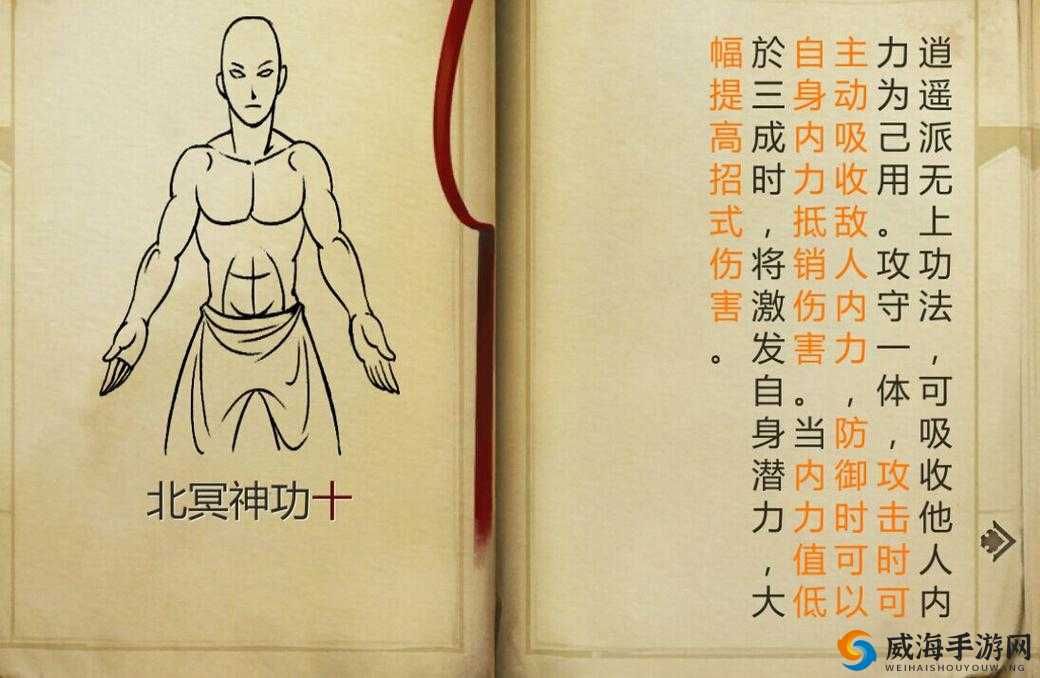 逍遥派无上功法，可吸收他人内
力为己用。攻守一体，攻击时可
主动吸收敌人内力，防御时可以
自身内力抵销伤害。当内力值低
於三成时，将激发自身潜力，大
幅提高招式伤害。
北冥神功十
威海手游网
WEIHAISHOUYOUWANG